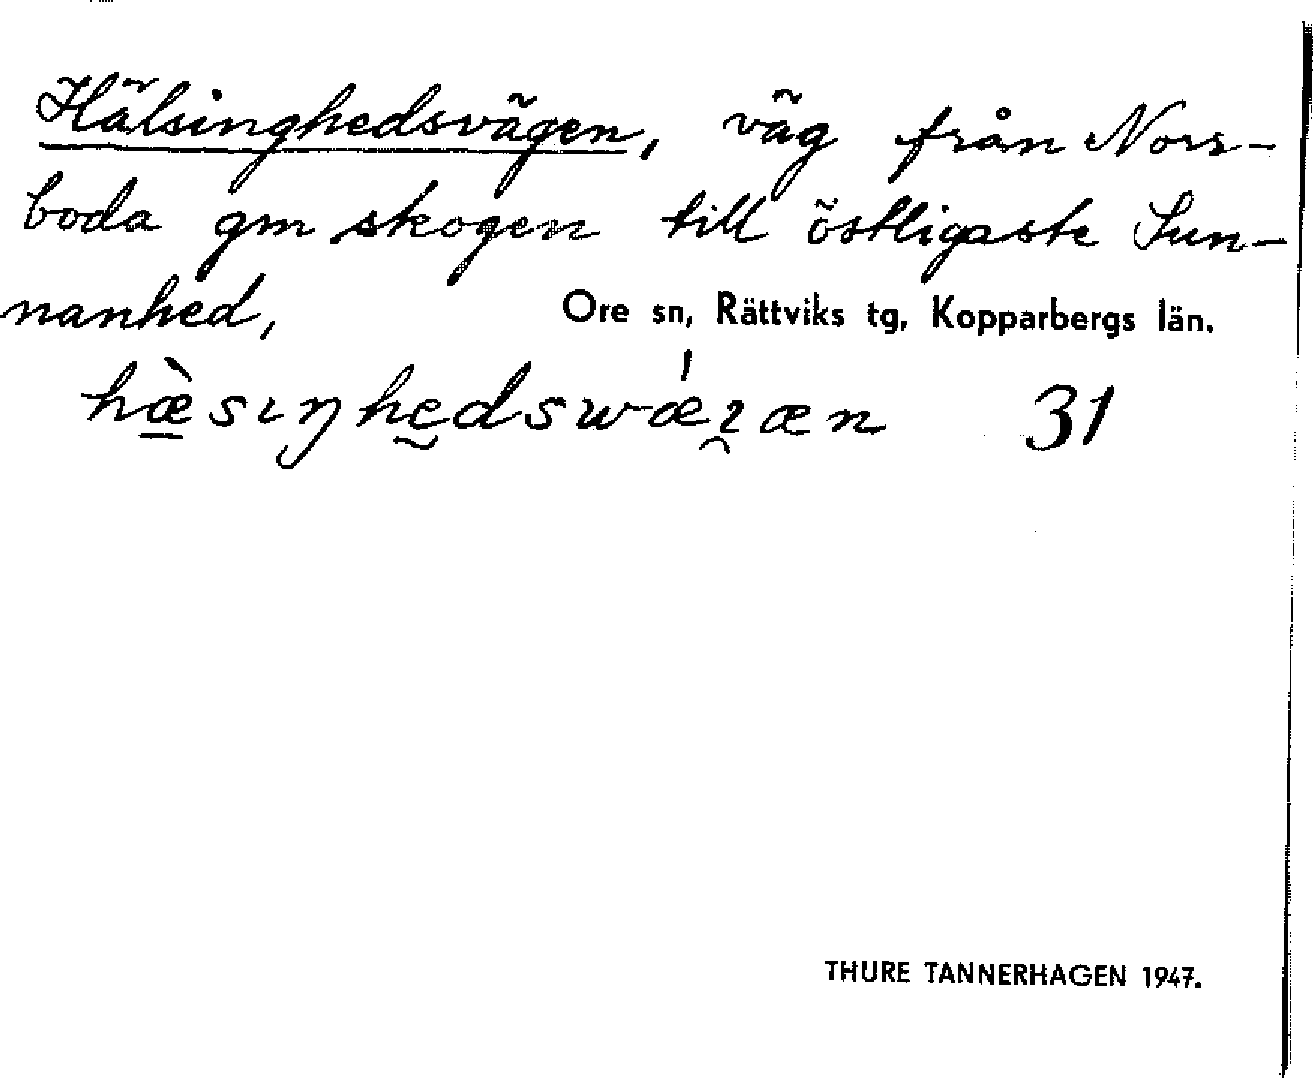 Hälsinghedsvägen, väg från Nors-
boda gm skogen till östligaste Sun-
nanhed, Ore sn, Rättviks tg, Kopparbergs län.
hæ̀sıŋhedswǽɿæn 31
THURE TANNERHAGEN 1947.